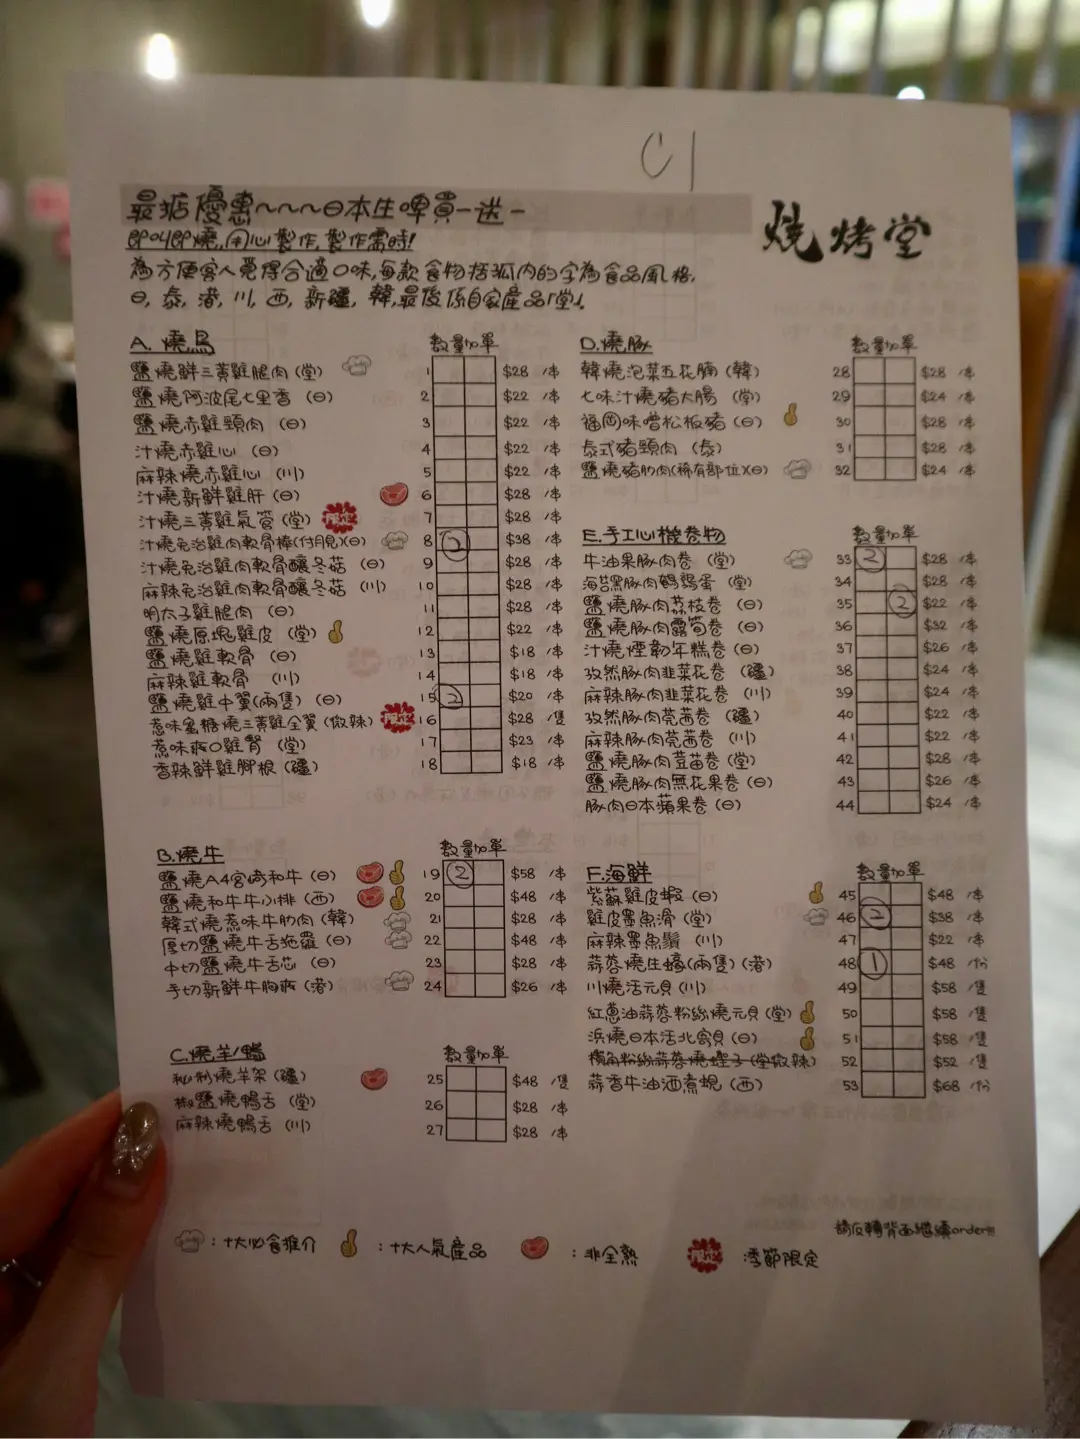 C1
最掂優惠~~~日本生啤買一送一
燒烤堂
即叫即燒,用心製作,製作需時!
為方便客人覓得合適口味,每款食物括弧內的字為食品風格,
日,泰,港,川,西,新疆,韓,最後係自家產品「堂」.
A. 燒鳥 數量 加單
鹽燒鮮三黃雞腿肉(堂) 1 $28 /串
鹽燒阿波尾七里香(日) 2 $22 /串
鹽燒赤雞頸肉(日) 3 $22 /串
汁燒赤雞心(日) 4 $22 /串
麻辣燒赤雞心(川) 5 $22 /串
汁燒新鮮雞肝(日) 6 $28 /串
汁燒三黃雞氣管(堂) 限定 7 $28 /串
汁燒免治雞肉軟骨棒(付月見)(日) 8 2 $38 /串
汁燒免治雞肉軟骨釀冬菇(日) 9 $28 /串
麻辣免治雞肉軟骨釀冬菇(川) 10 $28 /串
明太子雞腿肉(日) 11 $28 /串
鹽燒原塊雞皮(堂) 12 $22 /串
鹽燒雞軟骨(日) 13 $18 /串
麻辣雞軟骨(川) 14 $18 /串
鹽燒雞中翼(兩隻)(日) 15 2 $20 /串
惹味蜜糖燒三黃雞全翼(微辣) 限定 16 $28 /隻
惹味爽口雞腎(堂) 17 $23 /串
香辣鮮雞腳根(疆) 18 $18 /串
B.燒牛 數量 加單
鹽燒A4宮崎和牛(日) 19 2 $58 /串
鹽燒和牛牛小排(西) 20 $48 /串
韓式燒煮味牛肋肉(韓) 21 $28 /串
厚切鹽燒牛舌拖羅(日) 22 $48 /串
中切鹽燒牛舌芯(日) 23 $28 /串
手切新鮮牛胸爽(港) 24 $26 /串
C.燒羊/鴨 數量 加單
秘制燒羊架(疆) 25 $48 /隻
椒鹽燒鴨舌(堂) 26 $28 /串
麻辣燒鴨舌(川) 27 $28 /串
D.燒豚 數量 加單
韓燒泡菜五花腩(韓) 28 $28 /串
七味汁燒豬大腸(堂) 29 $24 /串
福岡味噌松板豬(日) 30 $28 /串
泰式豬頸肉(泰) 31 $28 /串
鹽燒豬肋肉(稀有部位)(日) 32 $24 /串
E.手工心機卷物 數量 加單
牛油果豚肉卷(堂) 33 2 $28 /串
海苔黑豚肉鵪鶉蛋(堂) 34 $28 /串
鹽燒豚肉荔枝卷(日) 35 2 $22 /串
鹽燒豚肉露筍卷(日) 36 $32 /串
汁燒煙韌年糕卷(日) 37 $26 /串
孜然豚肉韭菜花卷(疆) 38 $24 /串
麻辣豚肉韭菜花卷(川) 39 $24 /串
孜然豚肉芫茜卷(疆) 40 $22 /串
麻辣豚肉芫茜卷(川) 41 $22 /串
鹽燒豚肉荳苗卷(堂) 42 $28 /串
鹽燒豚肉無花果卷(日) 43 $26 /串
豚肉日本蘋果卷(日) 44 $24 /串
F.海鮮 數量 加單
紫蘇雞皮蝦(日) 45 $48 /串
雞皮墨魚滑(堂) 46 2 $38 /串
麻辣墨魚鬚(川) 47 $22 /串
蒜蓉燒生蠔(兩隻)(港) 48 1 $48 /份
川燒活元貝(川) 49 $58 /隻
紅蔥油蒜蓉粉絲燒元貝(堂) 50 $58 /隻
浜燒日本活北寄貝(日) 51 $58 /隻
欖角粉絲蒜蓉燒蟶子(堂微辣) 52 $52 /隻
蒜香牛油酒煮蜆(西) 53 $68 /份
請反轉背面繼續order!!!
:十大必食推介 :十大人氣產品 :非全熟 限定 季節限定